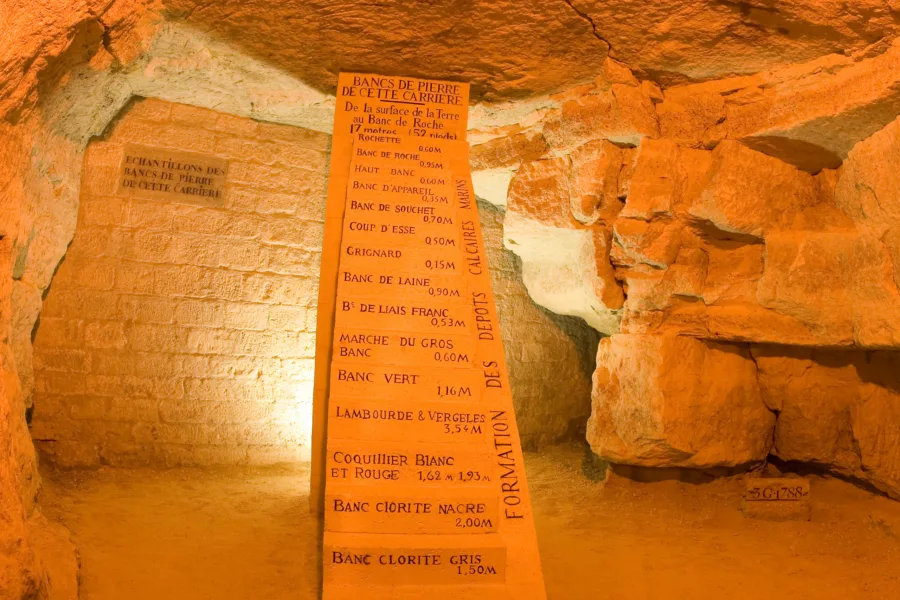 ECHANTILLONS DES
BANCS DE PIERRE
DE CETTE CARRIERE
BANCS DE PIERRE
DE CETTE CARRIERE
De la surface de la Terre
au Banc de Roche
17 metres (52 pieds)
ROCHETTE
0,60M
BANC DE ROCHE
0,95M
HAUT BANC
0,60M
BANC D'APPAREIL
0,35M
BANC DE SOUCHET
0,70M
COUP D'ESSE
0,50M
GRIGNARD
0,15M
BANC DE LAINE
0,90M
Bc DE LIAIS FRANC
0,53M
MARCHE DU GROS
BANC 0,60M
BANC VERT
1,16M
LAMBOURDE & VERGELES
3,54M
COQUILLIER BLANC
ET ROUGE 1,62M 1,93M
BANC CLORITE NACRE
2,00M
BANC CLORITE GRIS
1,50M
FORMATION DES DEPOTS CALCAIRES MARINS
3G·1788